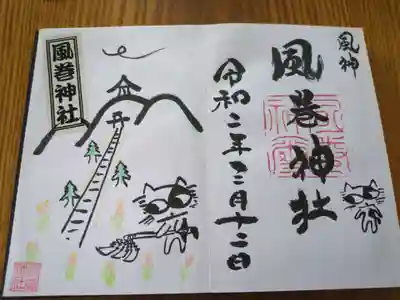 風神
風巻神社
令和二年三月十二日
風巻神社